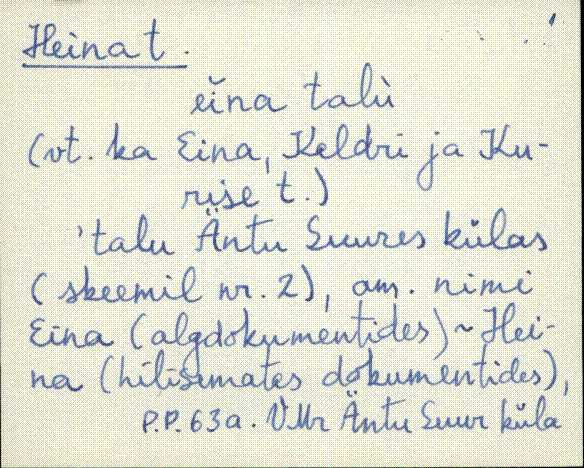 Heina t.
eĭna talù
(vt. ka Eina, Keldri ja Ku-
rise t.)
'talu Äntu Suures külas
(skeemil nr. 2), am. nimi
Eina (algdokumentides) ~ Hei-
na (hilisemates dokumentides),
P.P. 63a. VMr Äntu Suur küla